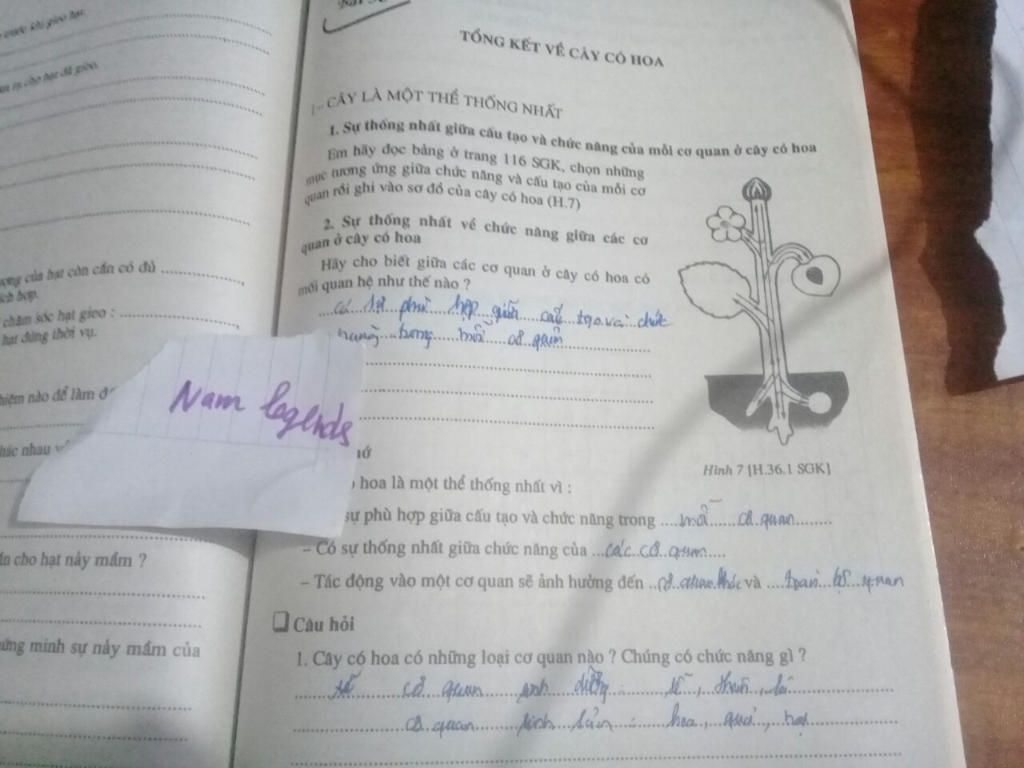 trước khi gieo hạt.
cho hạt đã gieo.
của hạt còn cần có đủ
hợp.
chăm sóc hạt gieo :
hạt đúng thời vụ.
nghiệm nào để làm
khác nhau
cho hạt nảy mầm ?
minh sự nảy mầm của
Nam legends
TỔNG KẾT VỀ CÂY CÓ HOA
I – CÂY LÀ MỘT THỂ THỐNG NHẤT
1. Sự thống nhất giữa cấu tạo và chức năng của mỗi cơ quan ở cây có hoa
Em hãy đọc bảng ở trang 116 SGK, chọn những
mục tương ứng giữa chức năng và cấu tạo của mỗi cơ
quan rồi ghi vào sơ đồ của cây có hoa (H.7)
2. Sự thống nhất về chức năng giữa các cơ
quan ở cây có hoa
Hãy cho biết giữa các cơ quan ở cây có hoa có
mối quan hệ như thế nào ?
có sự phù hợp giữa cấu tạo và chức
năng trong mỗi cơ quan
Hình 7 [H.36.1 SGK]
hoa là một thể thống nhất vì :
sự phù hợp giữa cấu tạo và chức năng trong mỗi cơ quan
– Có sự thống nhất giữa chức năng của các cơ quan
– Tác động vào một cơ quan sẽ ảnh hưởng đến cơ quan khác và toàn bộ quan
Câu hỏi
1. Cây có hoa có những loại cơ quan nào ? Chúng có chức năng gì ?
cơ quan sinh dưỡng : rễ, thân, lá
cơ quan sinh sản : hoa, quả, hạt